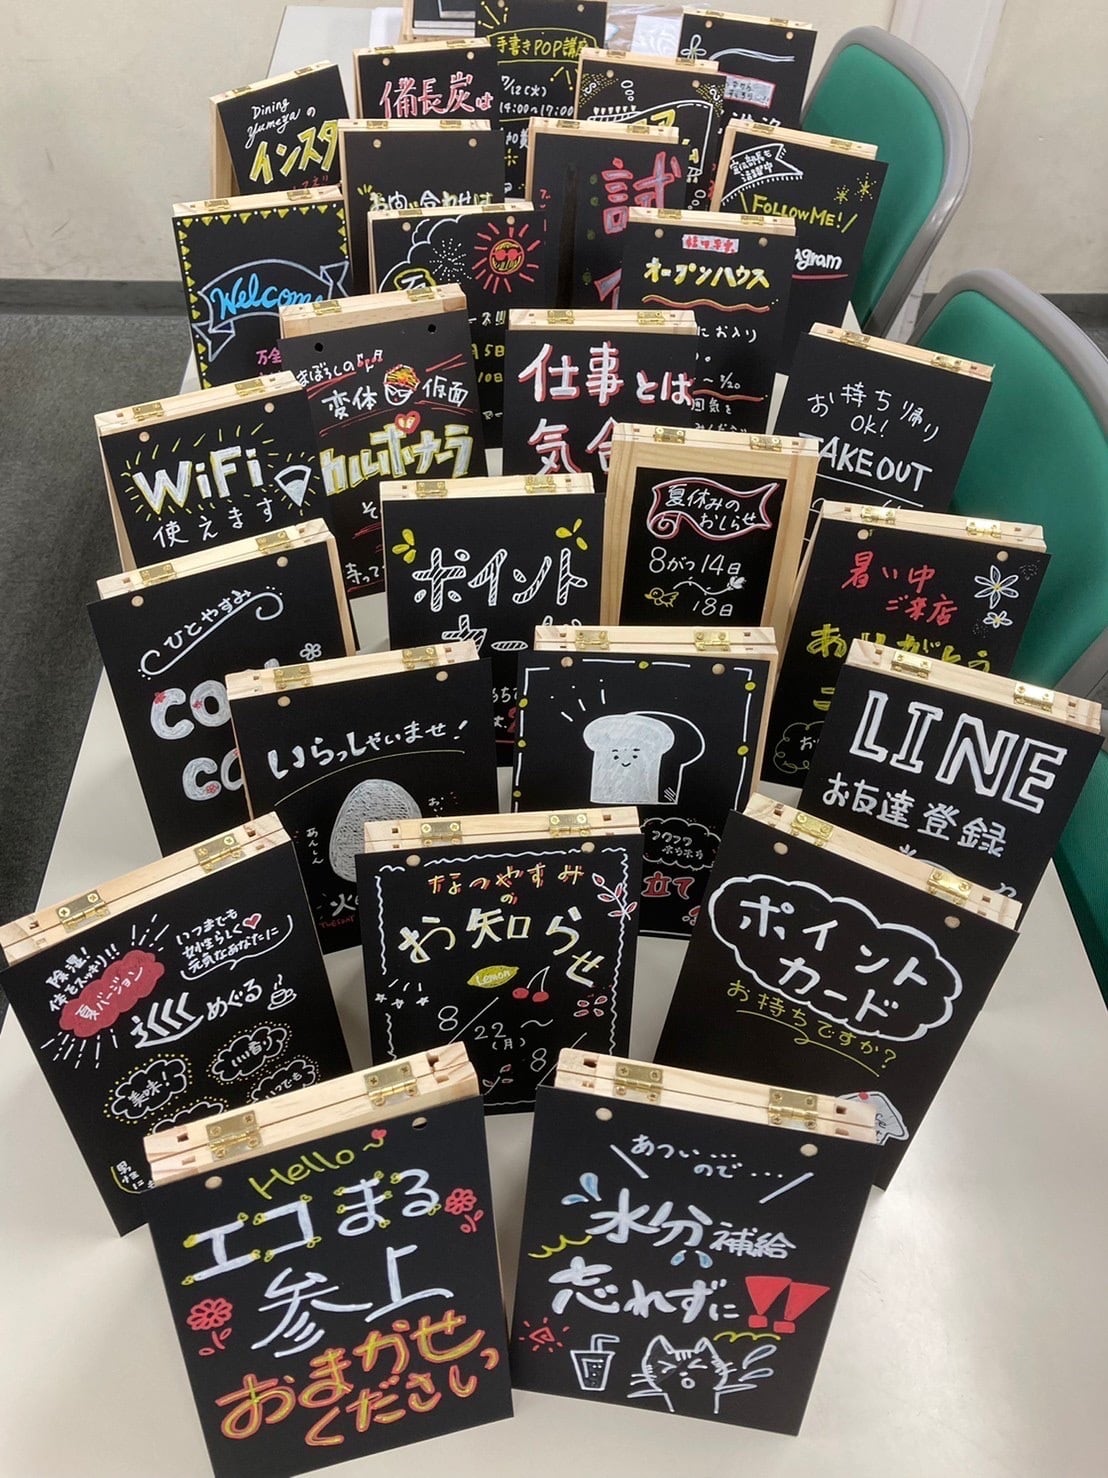 手書きPOP講座
7/12(火)
14:00〜17:00
備長炭は
Dining
Yumeyaの
インスタ
お問い合わせは
試
FOLLOW ME!
agram
オープンハウス
Welcome
万全
5日
10日
にお入り
〜3/20
囲気を
まぼろしの
変体 仮面
カルボナーラ
仕事とは
気合
お持ち帰り
OK!
TAKEOUT
WiFi
使えます
夏休みの
おしらせ
8がつ14日
18日
ポイント
カード
暑い中
ご来店
ありがとう
ひとやすみ
いらっしゃいませ!
あんしん
火
TUESDAY
フワフワ
立て
LINE
お友達登録
除湿!
体をスッキリ!!
夏バージョン
いつまでも
女性らしく
元気なあなたに
めぐる
美味!
いい香り
いつでも
なつやすみ
の
お知らせ
Lemon
8/22〜
(月)
8/
ポイント
カード
お持ちですか?
Hello〜
エコまる
参上
おまかせ
くださいっ
あつい…
ので…
水分補給
忘れずに!!